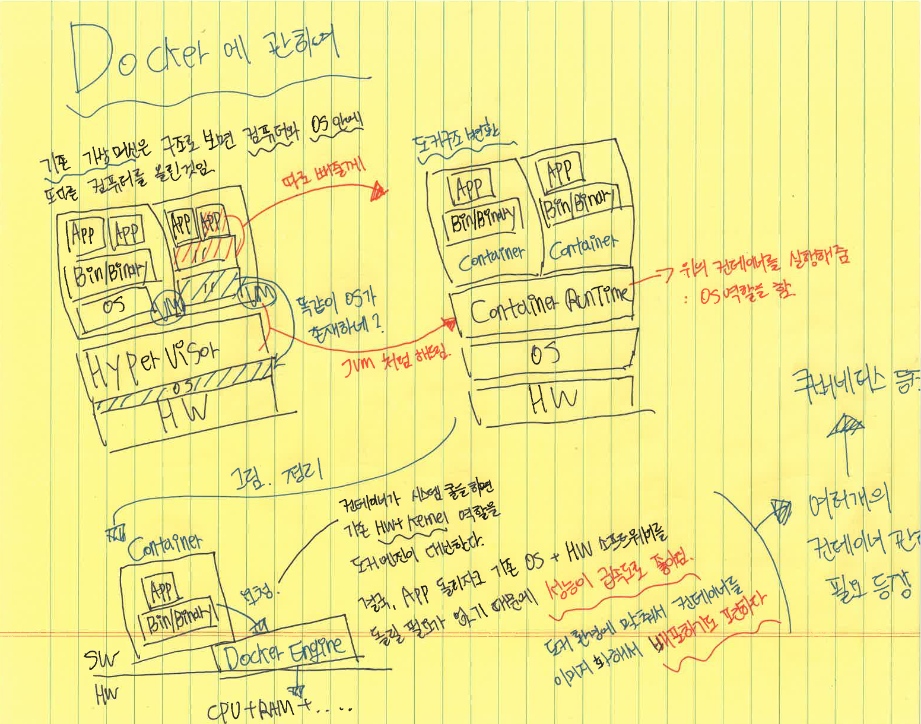 Docker 에 관하여
기존 가상머신은 구조로 보면 컴퓨터와 OS 안에
또다른 컴퓨터를 올린것임.
App App
Bin/Binary
OS
VM
App App
''
''
VM
HYPer Visor
OS
HW
따로 빼줄게
똑같이 OS가
존재하네?
JVM 처럼 해드림.
도커구조 변환
App
Bin/Binary
Container
App
Bin/Binary
Container
Container RunTime
OS
HW
위의 컨테이너를 실행해줌
: OS역할을 함.
그림. 정리
Container
App
Bin/Binary
Docker Engine
SW
HW
CPU+RAM+.....
컨테이너가 시스템 콜을하면
기존 HW+Kernel 역할을
도커엔진이 대신한다.
결국, App 돌리자고 기존 OS + HW 소프트웨어를
돌릴 필요가 없기 때문에 성능이 급속도로 좋아짐.
도커 환경에 맞춰서 컨테이너를
이미지 화해서 배포하기도 편하다
쿠버네티스 등
여러개의
컨테이너 관
필요 등장